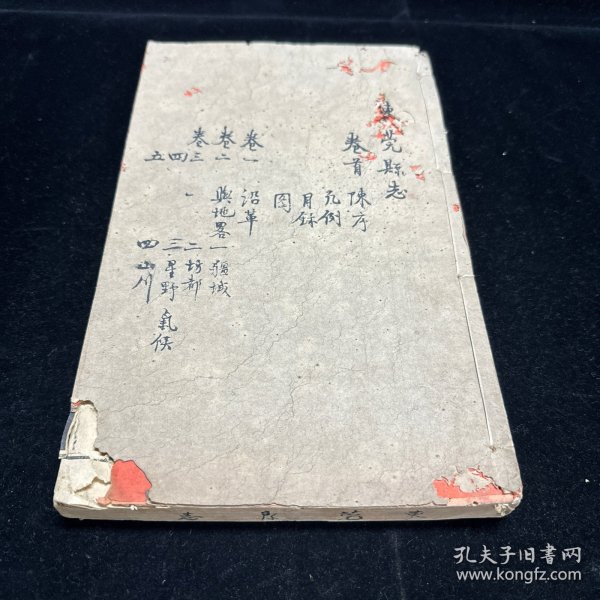 東莞縣志
卷首 陳序
凡例
目錄
圖
卷一 沿革
卷二 輿地畧一 疆域
卷三 、 二 坊都
四 三 星野 氣候
五 四 山川
莞 縣 志
孔夫子旧书网
www.kongfz.com